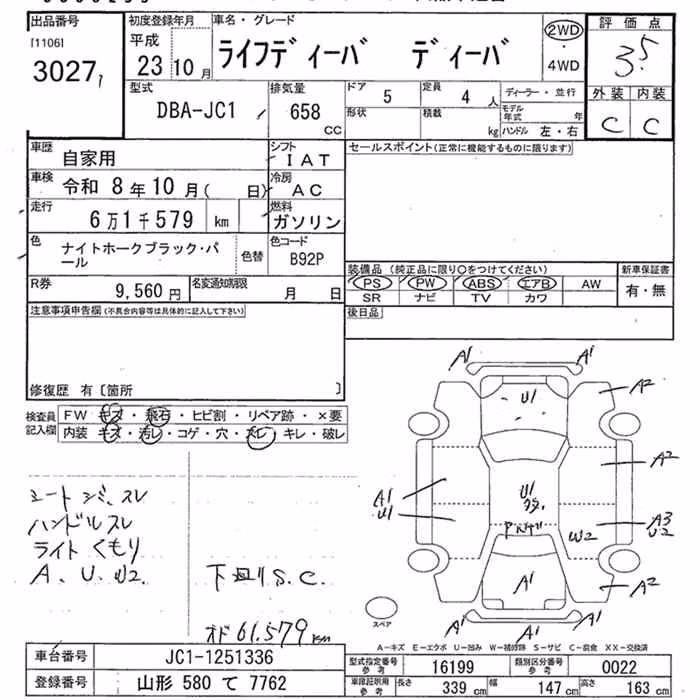 出品番号
[1106]
3027
初度登録年月
平成
23 10 月
車名・グレード
ライフディーバ ディーバ
2WD
・
4WD
評価点
3.5
外装 内装
C C
型式
DBA-JC1
排気量
658
CC
ドア
5
定員
4 人
形状
積載
kg
ディーラー・並行
モデル年式 年
ハンドル 左・右
車歴
自家用
シフト
IAT
車検
令和 8年10月( 日)
冷房
AC
走行
6万1千579 km
燃料
ガソリン
色
ナイトホークブラック・パール
色替
色コード
B92P
R券
9,560 円
名変通知期限
月 日
セールスポイント(正常に機能するものに限ります)
装備品 (純正品に限り○をつけてください)
PS PW ABS エアB AW
SR ナビ TV カワ
新車保証書
有・無
後日品
注意事項申告欄(不具合内容等は具体的に記入して下さい)
修復歴 有〔箇所 〕
検査員
記入欄
FW キズ・飛石・ヒビ割・リペア跡・×要
内装 キズ・汚レ・コゲ・穴・スレ・キレ・破レ
シートシミ、スレ
ハンドルスレ
ライトくもり
A、U、W2.
下回りS.C.
オド 61.579km
A1 A1
U1
A2
A2
A1
U1
U1
A3
U2
W2
A1
A2
A1 A1 A1
スペア
A-キズ E-エクボ U-凹み W-補修跡 S-サビ C-腐食 XX-交換済
車台番号
JC1-1251336
登録番号
山形 580 て 7762
型式指定番号
参考
16199
類別区分番号
参考
0022
車検証明用
参考
長さ 339 cm
幅 147 cm
高さ 163 cm